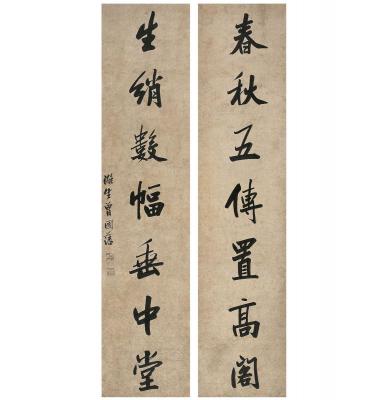 春秋五傳置高閣
生綃數幅垂中堂
滌生曾國藩